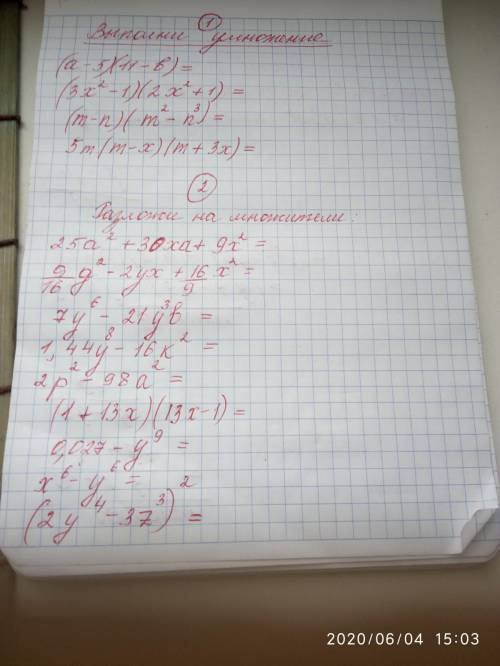 1
Выполни умножение
(a-5)(11-b)=
(3x²-1)(2x²+1)=
(m-n)(m²-n³)=
5m(m-x)(m+3x)=
2
Разложи на множители:
25a²+30xa+9x²=
9/16 y²-2yx+16/9 x²=
7y⁶-21y³b=
1,44y⁸-16k²=
2p²-98a²=
(1+13x)(13x-1)=
0,027-y⁹=
x⁶-y⁶=
(2y⁴-3z³)²=
2020/06/04 15:03